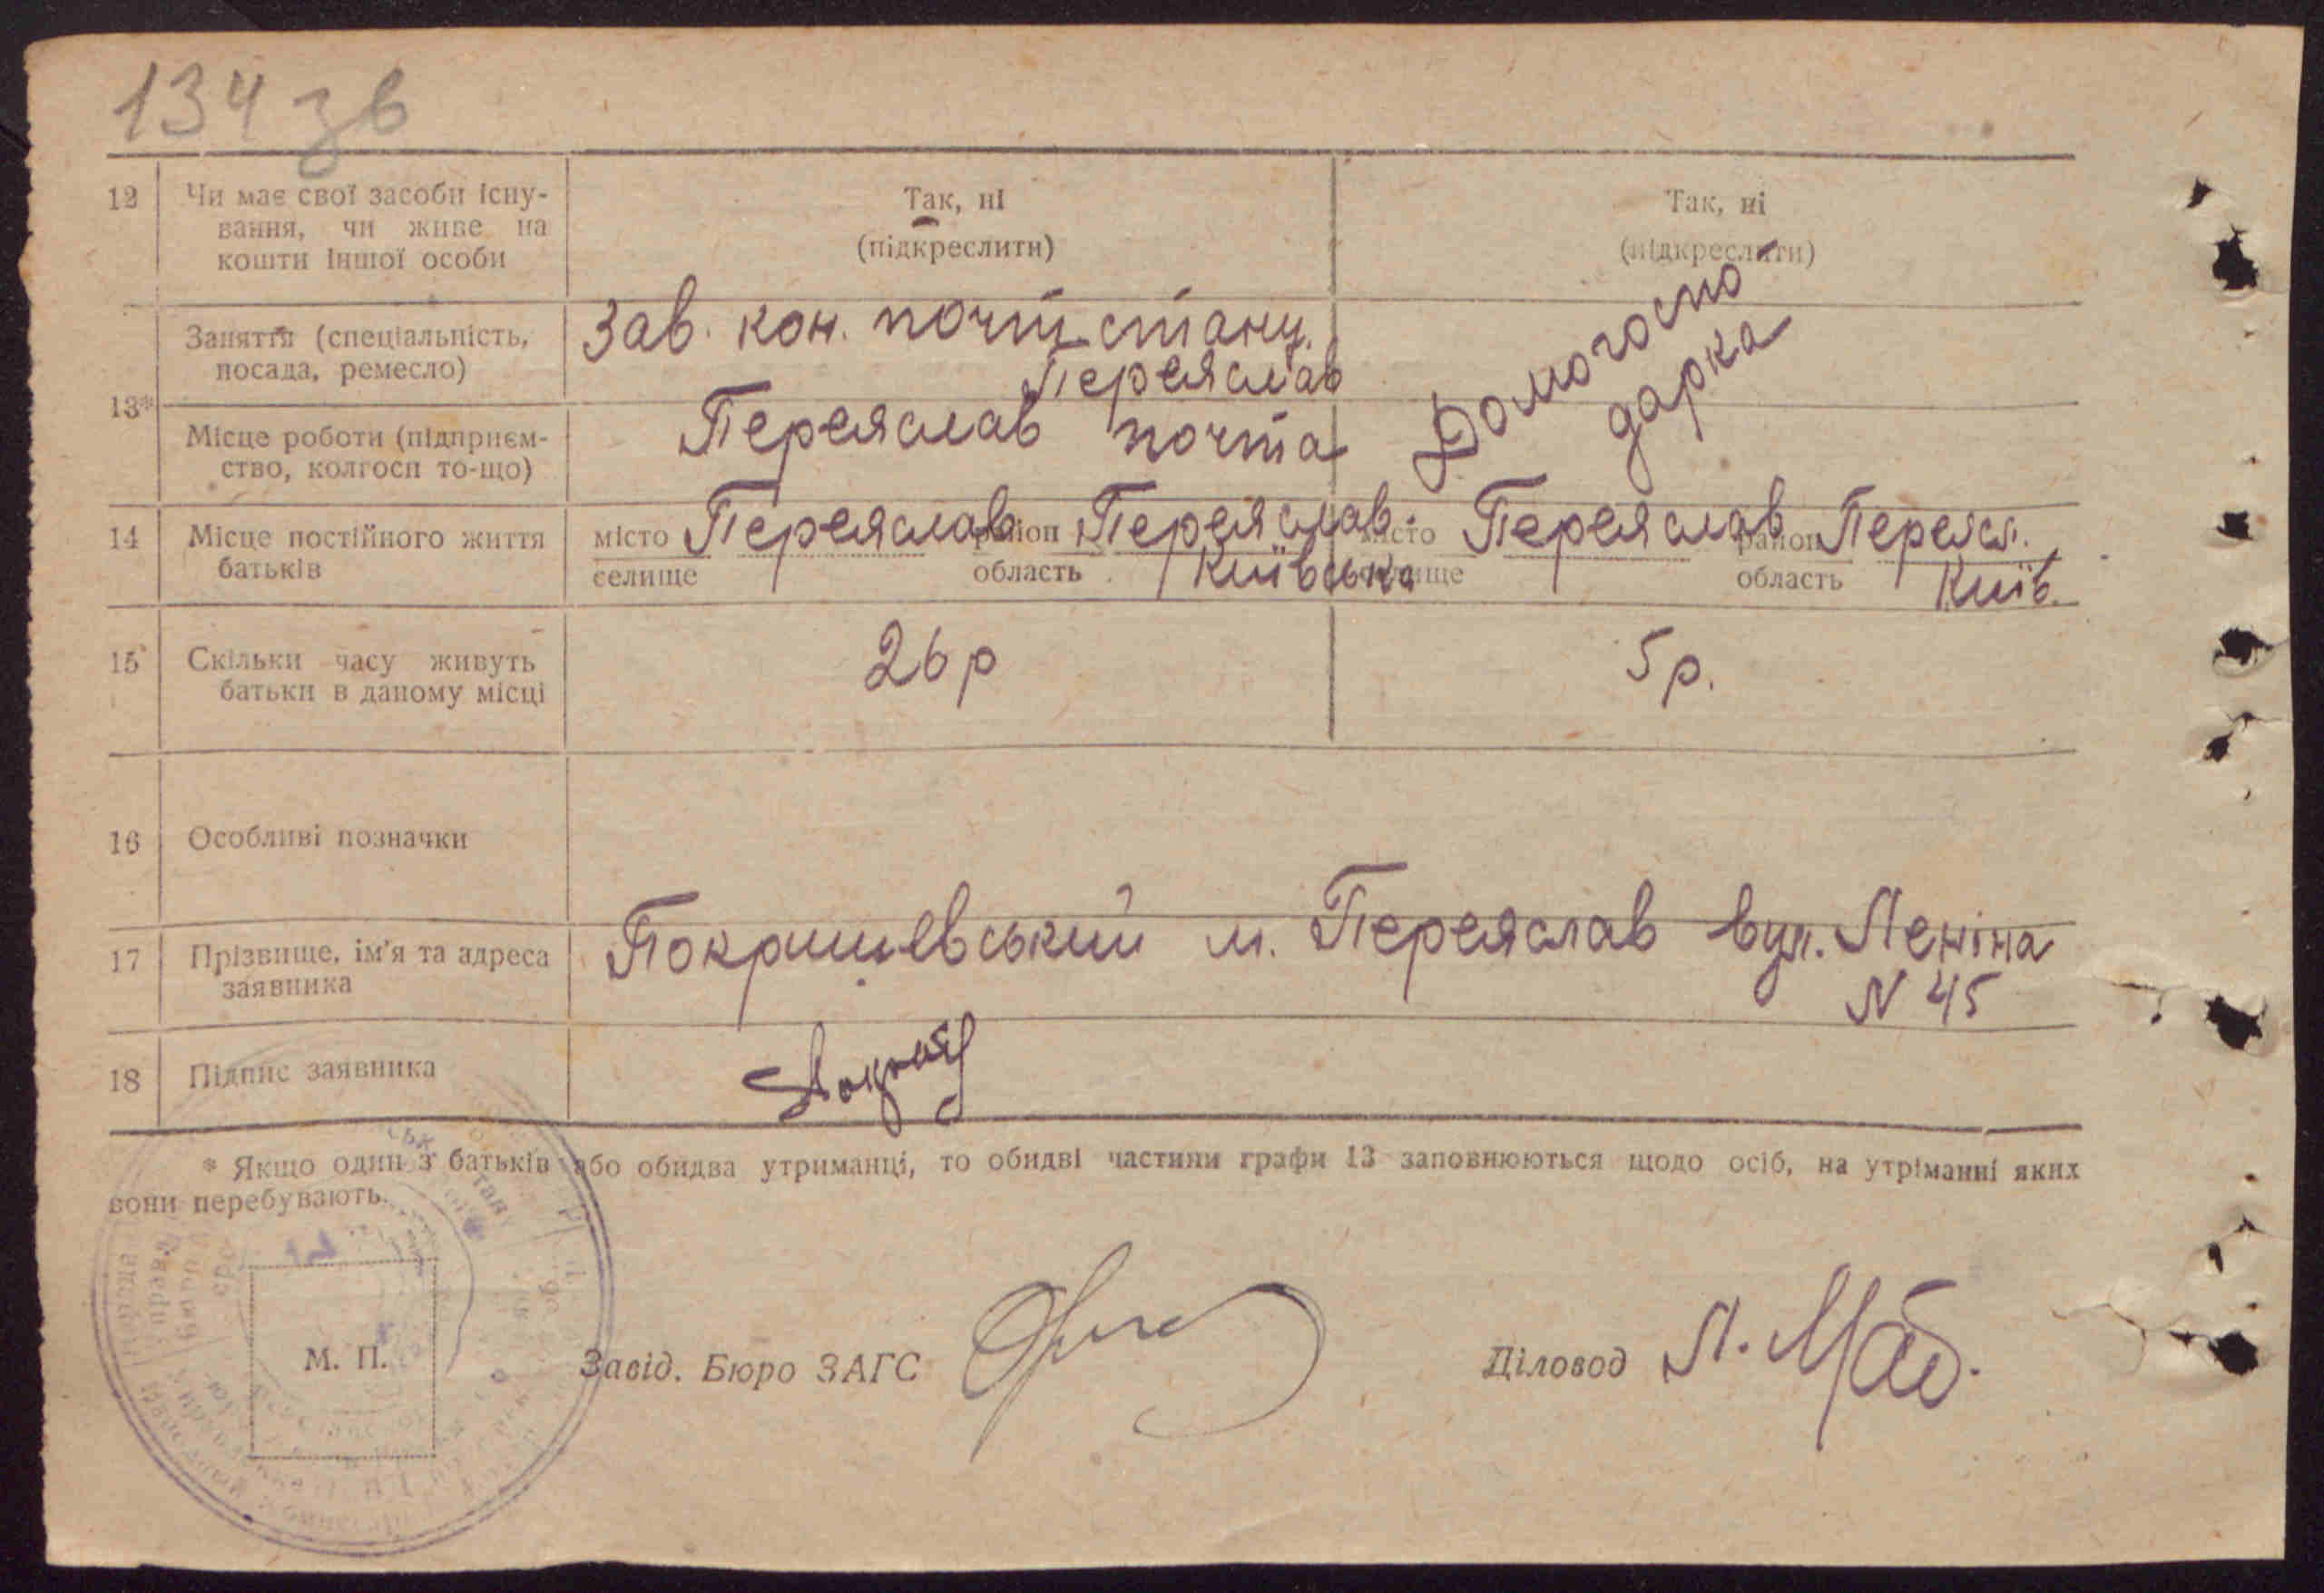 134 зв
12 Чи має свої засоби існу-
вання, чи живе на
кошти іншої особи
Так, ні
(підкреслити)
Так, ні
(підкреслити)
13*
Заняття (спеціальність,
посада, ремесло)
Зав. кон. почт. станц.
Переяслав
Домогоспо
дарка
Місце роботи (підприєм-
ство, колгосп то-що)
Переяслав почта
14 Місце постійного життя
батьків
місто Переяслав район Переяслав.
селище область Київська
місто Переяслав район Переясл.
селище область Київ.
15 Скільки часу живуть
батьки в даному місці
26 р
5 р.
16 Особливі позначки
17 Прізвище, ім'я та адреса
заявника
Покришевський м. Переяслав вул. Леніна
N 45
18 Підпис заявника
* Якщо один з батьків або обидва утриманці, то обидві частини графи 13 заповнюються щодо осіб, на утріманні яких
вони перебувають.
М. П.
Завід. Бюро ЗАГС
Діловод